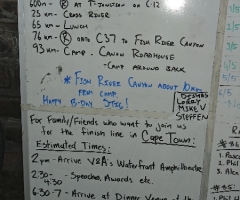 600m - (R) AT T-JUNCTION ON C-12
25 km - CROSS RIVER
65 km - LUNCH
76 km - (R) ONTO C37 TO FISH RIVER CANYON
93 km - CAMP. CANON ROADHOUSE
- CAMP AROUND BACK
* FISH RIVER CANYON ABOUT 10km
FROM CAMP.
HAPPY B-DAY
STEFFEN
For Family/Friends who want to join us
for the finish line in Cape Town:
Estimated Times:
2pm - Arrive V&A's Waterfront Amphitheatre
2:30-
4:30 - Speeches, Awards etc.
6:30-7 - Arrive at Dinner Venue